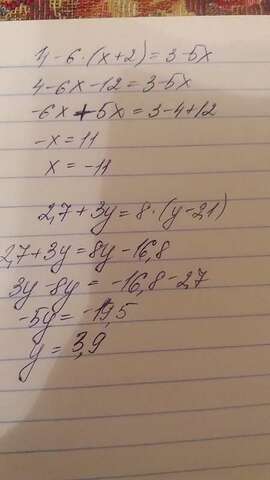 4-6·(x+2)=3-5x
4-6x-12=3-5x
-6x+5x=3-4+12
-x=11
x=-11
2,7+3y=8·(y-2,1)
2,7+3y=8y-16,8
3y-8y=-16,8-2,7
-5y=-19,5
y=3,9